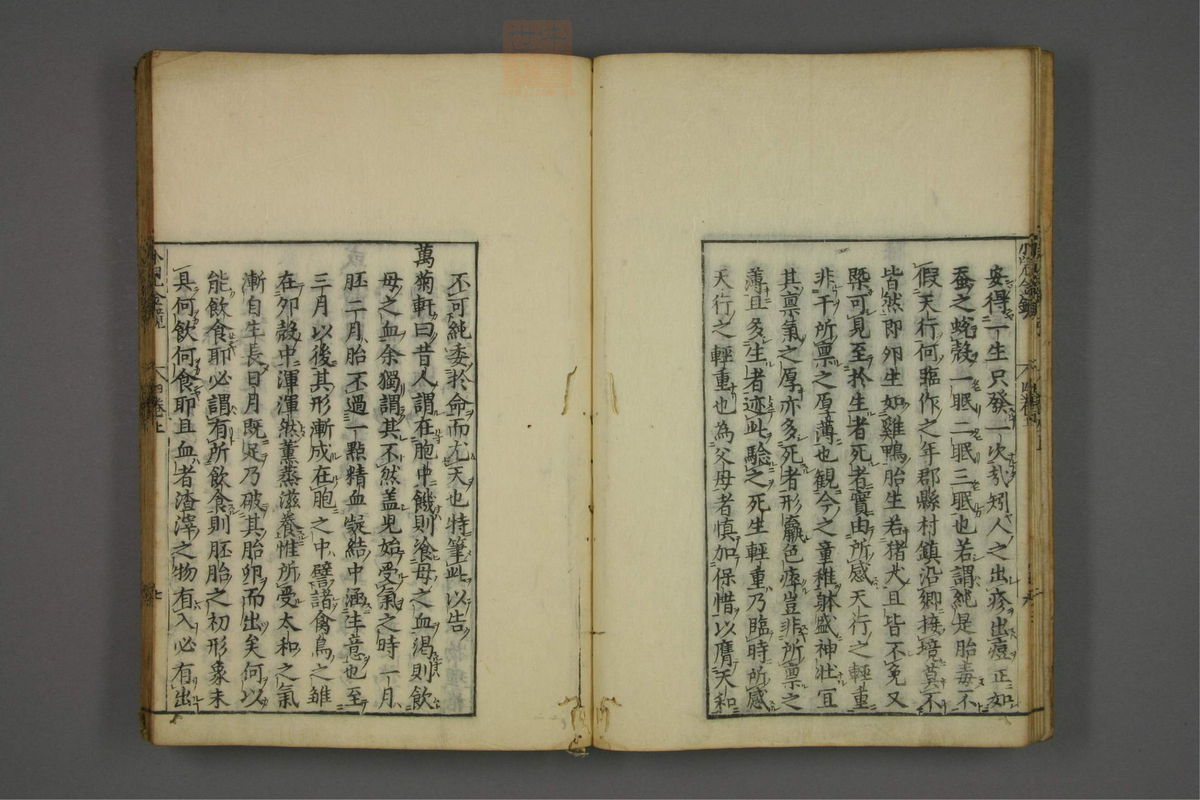 安得一生只發一次哉矧人之出疹出痘正如
蚕之蛻殼一眠二眠三眠也若謂純是胎毒不
假天行何臨作之年郡縣村鎮沿鄉接境莫不
皆然即夘生如雞鴨胎生若猪犬且皆不免又
槩可見至於生者死者實由所感天行之輕重
非干所禀之厚薄也観今之童稚躰盛神壯宜
其禀氣之厚亦多死者形羸色瘁豈非所禀之
薄且多生者迹此驗之死生輕重乃臨時所感
天行之輕重也為父母者慎加保惜以膺天和
不可純委於命而尤天也特筆此以告
萬菊軒曰昔人謂在胞中饑則飡母之血渴則飲
母之血余獨謂其不然盖児始受氣之時一月
胚二月胎不過一點精血凝結中涵生意也至
三月以後其形漸成在胞之中譬諸禽鳥之雏
在夘殼中渾渾然薫蒸滋養惟所受太和之氣
漸自生長日月既足乃破其胎卵而出矣何以
能飲食耶必謂有所飲食則胚胎之初形象未
具何飲何食耶且血者渣滓之物有入必有出